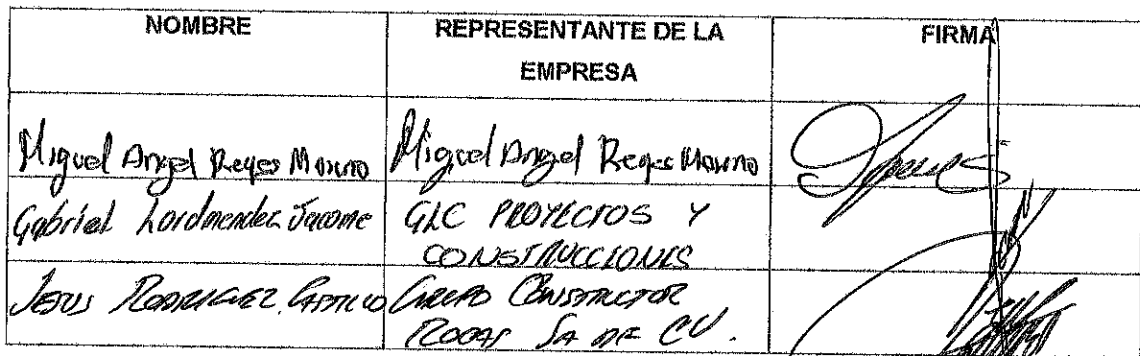 NOMBRE
REPRESENTANTE DE LA
EMPRESA
FIRMA
Miguel Angel Reyes Moreno
Miguel Angel Reyes Moreno
Gabriel
GLC PROYECTOS Y
CONSTRUCCIONES
JESUS RODRIGUEZ CASTILLO
GRUPO CONSTRUCTOR
ROCAS SA DE CV.